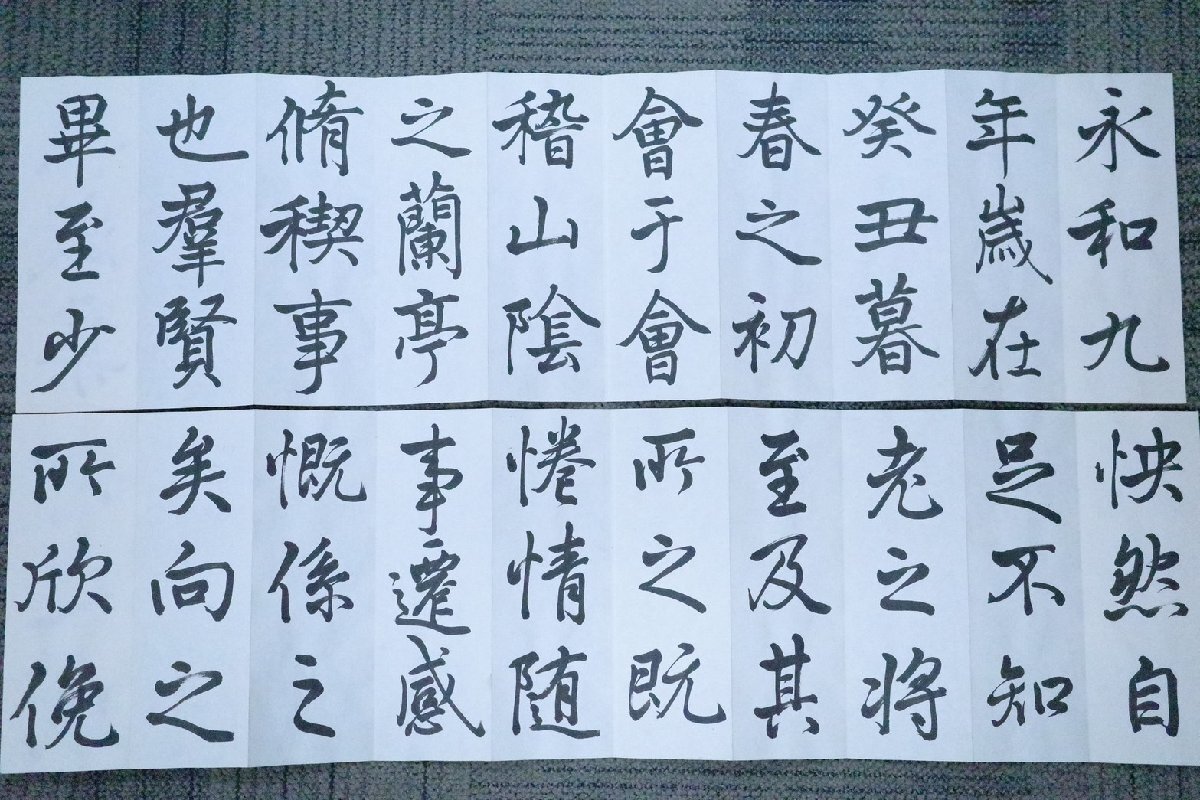 永和九
年歲在
癸丑暮
春之初
會于會
稽山陰
之蘭亭
脩稧事
也羣賢
畢至少
怏然自
足不知
老之將
至及其
所之既
惓情随
事遷感
慨係之
矣向之
所欣俛